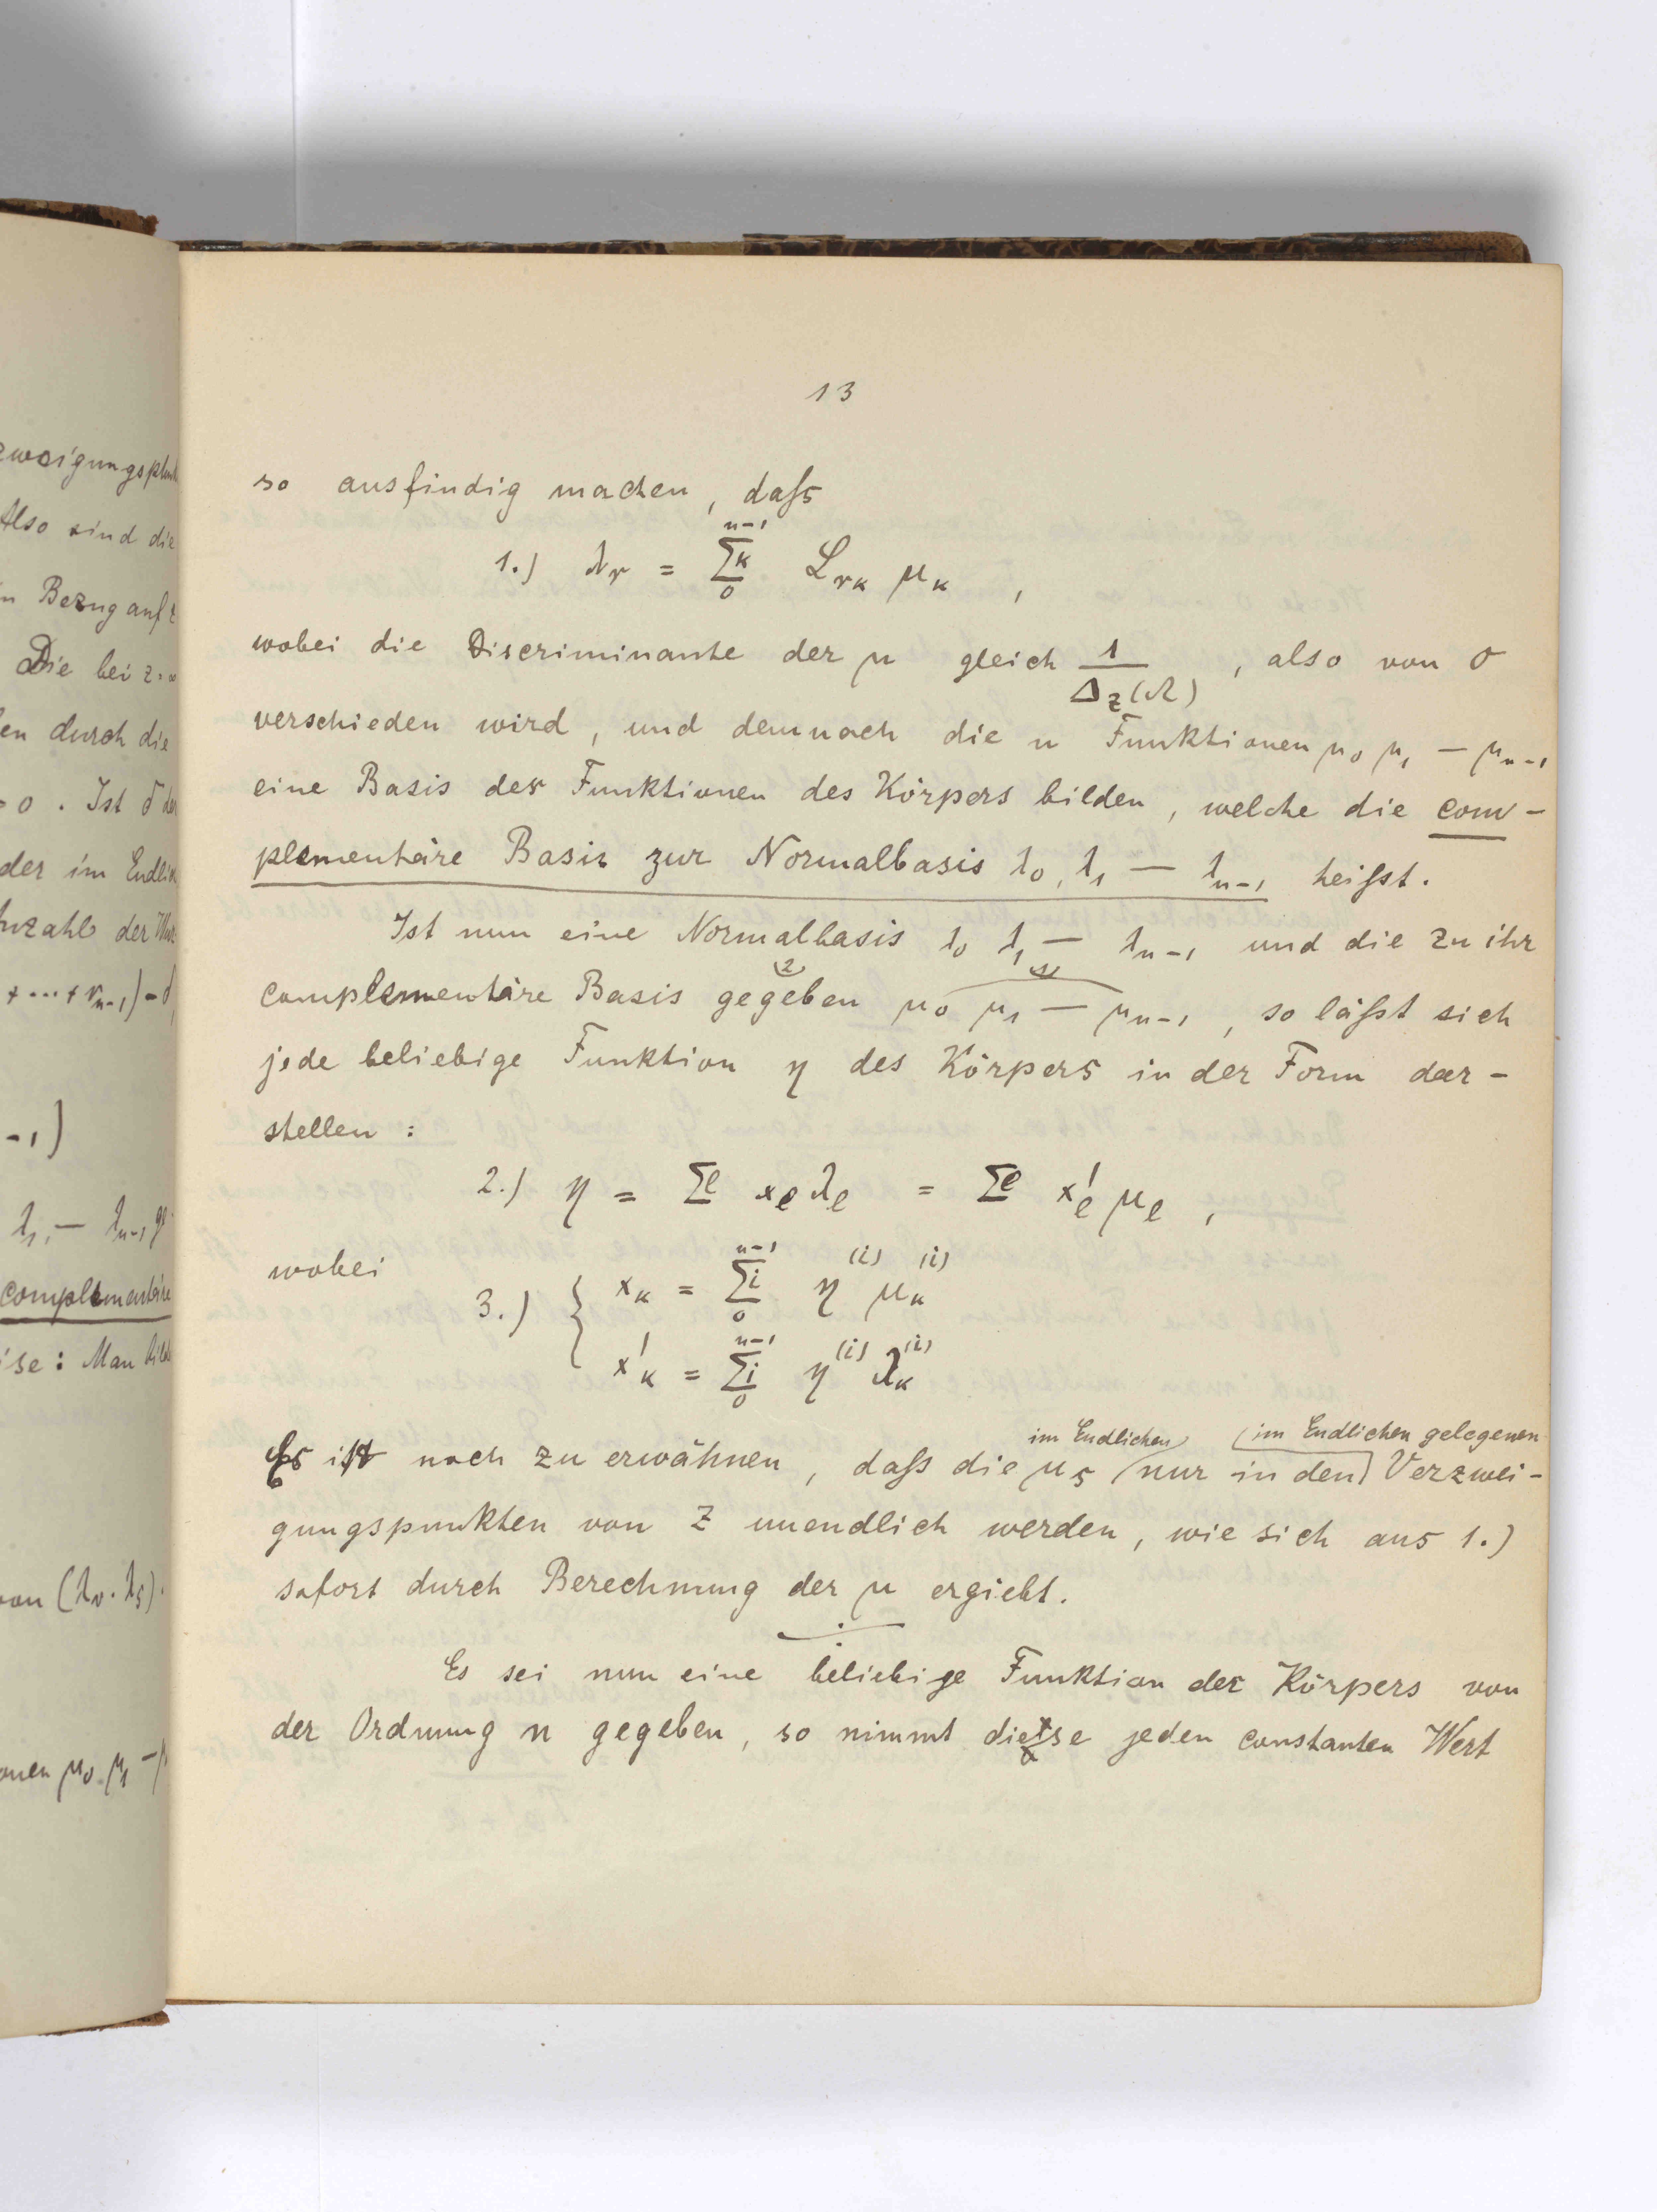 zweigungspkt
Also sind die
in Bezug auf z
Die bei z=∞
en durch die
=0. Ist δ der
der im Endlich
Anzahl der
+ ⋯ + r_{n-1}) = δ
-1)
λ_1, — λ_{n-1}
complementäre
ise: Man bild
von (λ_r · λ_s)
onen μ_0 μ_1 —
13
so ausfindig machen, daſs
1.) λ_r = Σ^k_{0}^{n-1} L_{rk} μ_k ,
wobei die Discriminante der μ gleich 1/Δ_z(Λ) , also von 0
verschieden wird, und demnach die n Funktionen μ_0 μ_1 — μ_{n-1}
eine Basis der Funktionen des Körpers bilden, welche die com-
plementäre Basis zur Normalbasis λ_0, λ_1 — λ_{n-1} heiſst.
Ist nun eine Normalbasis λ_0 λ_1 — λ_{n-1} und die zu ihr
complementäre Basis gegeben μ_0 μ_1 — μ_{n-1}, so läſst sich
jede beliebige Funktion η des Körpers in der Form dar-
stellen :
2.) η = Σ^e x_e λ_e = Σ^e x'_e μ_e ,
wobei
3.) { x_k = Σ^i_{0}^{n-1} η^{(i)} μ_k^{(i)}
x'_k = Σ^i_{0}^{n-1} η^{(i)} λ_k^{(i)}
im Endlichen (im Endlichen gelegenen
Es ist noch zu erwähnen, daſs die μ_s nur in den Verzwei-
gungspunkten von z unendlich werden, wie sich aus 1.)
sofort durch Berechnung der μ ergiebt.
Es sei nun eine beliebige Funktion des Körpers von
der Ordnung n gegeben, so nimmt diese jeden constanten Wert